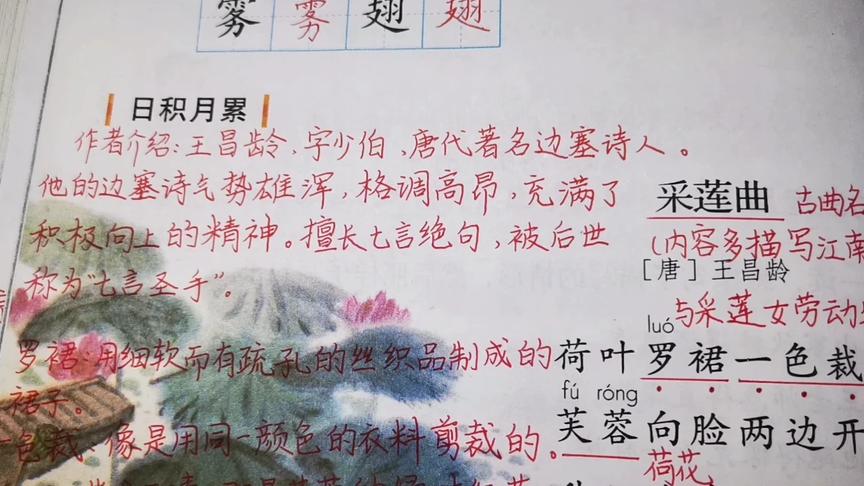 雾 雾 翅 翅
日积月累
作者介绍:王昌龄,字少伯,唐代著名边塞诗人。
他的边塞诗气势雄浑,格调高昂,充满了
积极向上的精神。擅长七言绝句,被后世
称为“七言圣手”。
采莲曲 古曲名
(内容多描写江南
[唐]王昌龄
luó 与采莲女劳动
罗裙:用细软而有疏孔的丝织品制成的
裙子。
荷叶罗裙一色裁
fú róng
一色裁:像是用同一颜色的衣料剪裁的。
芙蓉向脸两边开
荷花